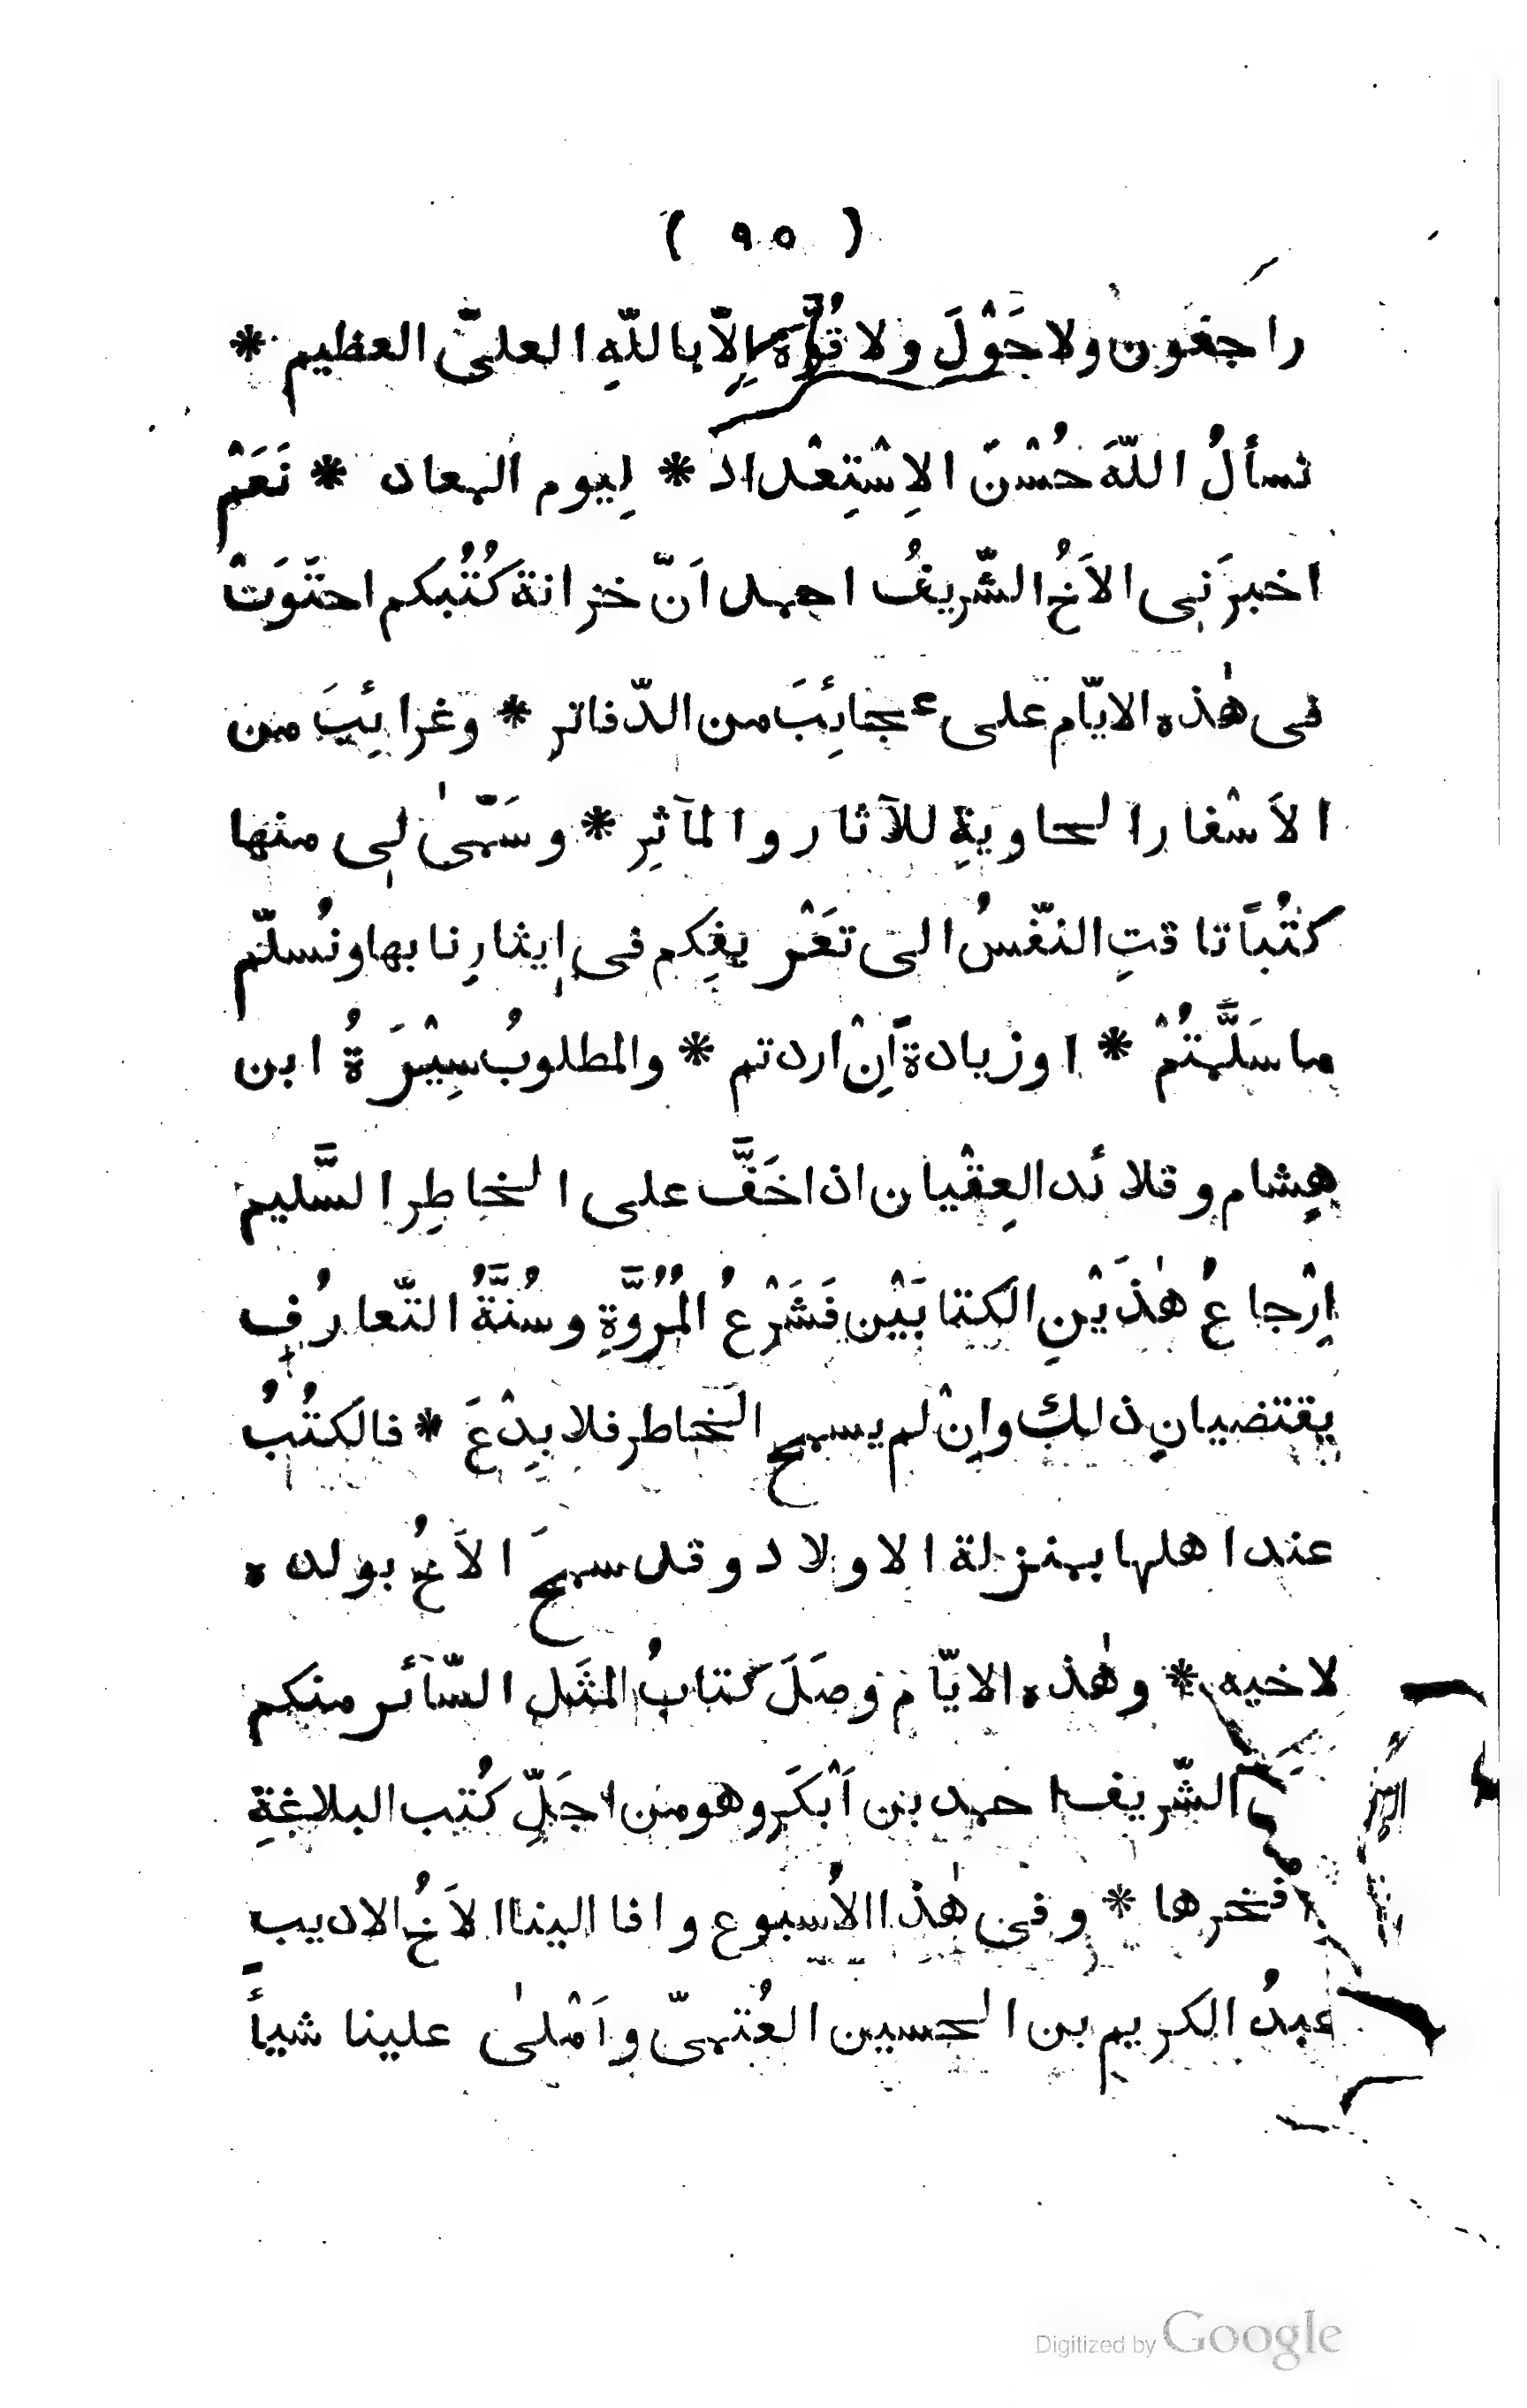 ( ٩٥ )
راجعون ولا حَوْلَ ولا قُوَّةَ إِلّا باللّهِ العلىّ العظيم *
نسألُ اللّهَ حُسْنَ الاِسْتِعْداد * لِيوم المعاد * نَعَمْ
اخبرَنى الاَخُ الشّريفُ احمد اَنّ خزانةَ كُتُبكم احتَوَتْ
فى هٰذه الايّام على عجائِبَ من الدّفاتر * وغرائِبَ من
الاَسْفار الحاويةِ للآثار والمآثِر * وسَمّىٰ لى منها
كُتُباً تاقتِ النّفسُ الى تَعْريفِكم فى إيثارِنا بها ونُسلّم
ما سَلَّمتُمْ * او زيادةً اِنْ اردتم * والمطلوبُ سِيْرَةُ ابن
هِشام وقلائد العِقْيان اذا خَفَّ على الخاطِر السَّليم
اِرْجاعُ هٰذَيْنِ الكتابَيْن فَشَرْعُ المُرُوَّةِ وسُنَّةُ التّعارُفِ
يقتضيانِ ذلك وانْ لم يسمح الخاطر فلا بِدْعَ * فالكتُبُ
عند اهلها بمنزلة الاولاد وقد سمحَ الاَخُ بولده
لاخيه * وهٰذه الايّام وصَلَ كتابُ المثَل السّآئر منكم
الشّريف احمد بن اَبْكَر وهو من اجَلّ كُتب البلاغةِ
فخرها * وفى هٰذا الاُسبوع وافا الينا الاَخُ الاديب
عبدُ الكريم بن الحسين العُتمىّ واَمْلىٰ علينا شيأً
Digitized by Google